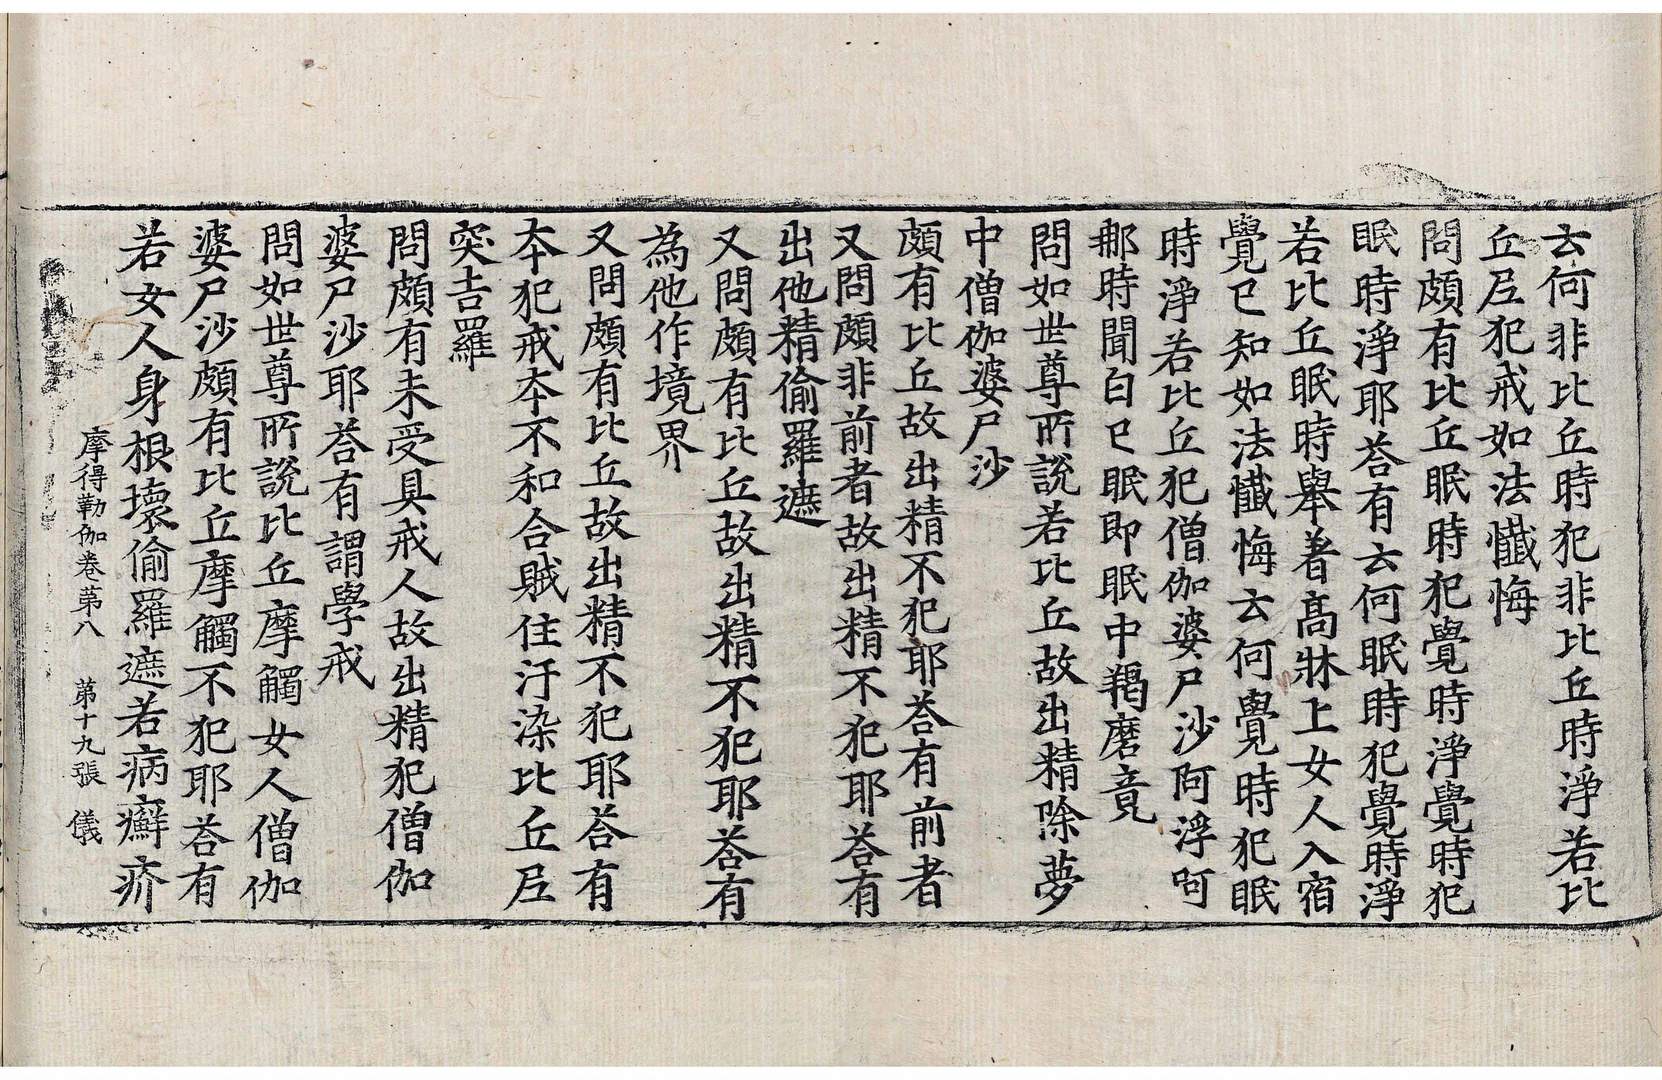 云何非比丘時犯非比丘時淨若比
丘尼犯戒如法懺悔
問頗有比丘眠時犯覺時淨覺時犯
眠時淨耶荅有云何眠時犯覺時淨
若比丘眠時舉著高牀上女人入宿
覺已知如法懺悔云何覺時犯眠
時淨若比丘犯僧伽婆尸沙阿浮呵
那時聞白已眠即眠中羯磨竟
問如世尊所說若比丘故出精除夢
中僧伽婆尸沙
頗有比丘故出精不犯耶荅有前者
又問頗非前者故出精不犯耶荅有
出他精偷羅遮
又問頗有比丘故出精不犯耶荅有
為他作境界
又問頗有比丘故出精不犯耶荅有
本犯戒本不和合賊住汙染比丘尼
突吉羅
問頗有未受具戒人故出精犯僧伽
婆尸沙耶荅有謂學戒
問如世尊所說比丘摩觸女人僧伽
婆尸沙頗有比丘摩觸不犯耶荅有
若女人身根壞偷羅遮若病癬疥
摩得勒伽卷苐八 苐十九張 儀